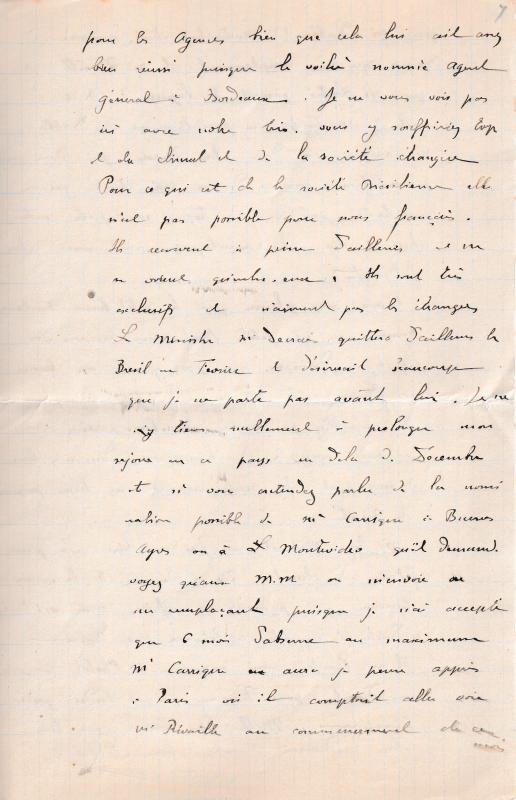 7
pour les Agences bien que cela lui ait assez
bien réussi puisque le voilà nommé Agent
Général à Bordeaux. Je ne vous vois pas
ici avec notre bio. vous y souffririez trop
et du climat et de la société étrangère
Pour ce qui est de la société Brésilienne elle
n'est pas possible pour nous français.
Ils reçoivent à peine d'ailleurs et ne
se voient qu'entre-eux. Ils sont très
exclusifs et n'aiment pas les étrangers
Le Ministre Mr quittera d'ailleurs le
Brésil en Fevrier et désirerait beaucoup
que je ne parte pas avant lui. Je ne
tiens nullement à prolonger mon
séjour en ce pays au delà de Décembre
et si vous entendez parler de la nomi
nation possible de Mr Carrigue à Buenos
Ayres ou à Montevideo qu'il demande
voyez qu'aux M.M on m'envoie
un remplaçant puisque je n'ai accepté
que 6 mois d'absence au maximum
Mr Carrigue aura je pense appris
à Paris où il comptait aller voir
Mr Rivaille au commencement de ce
mois